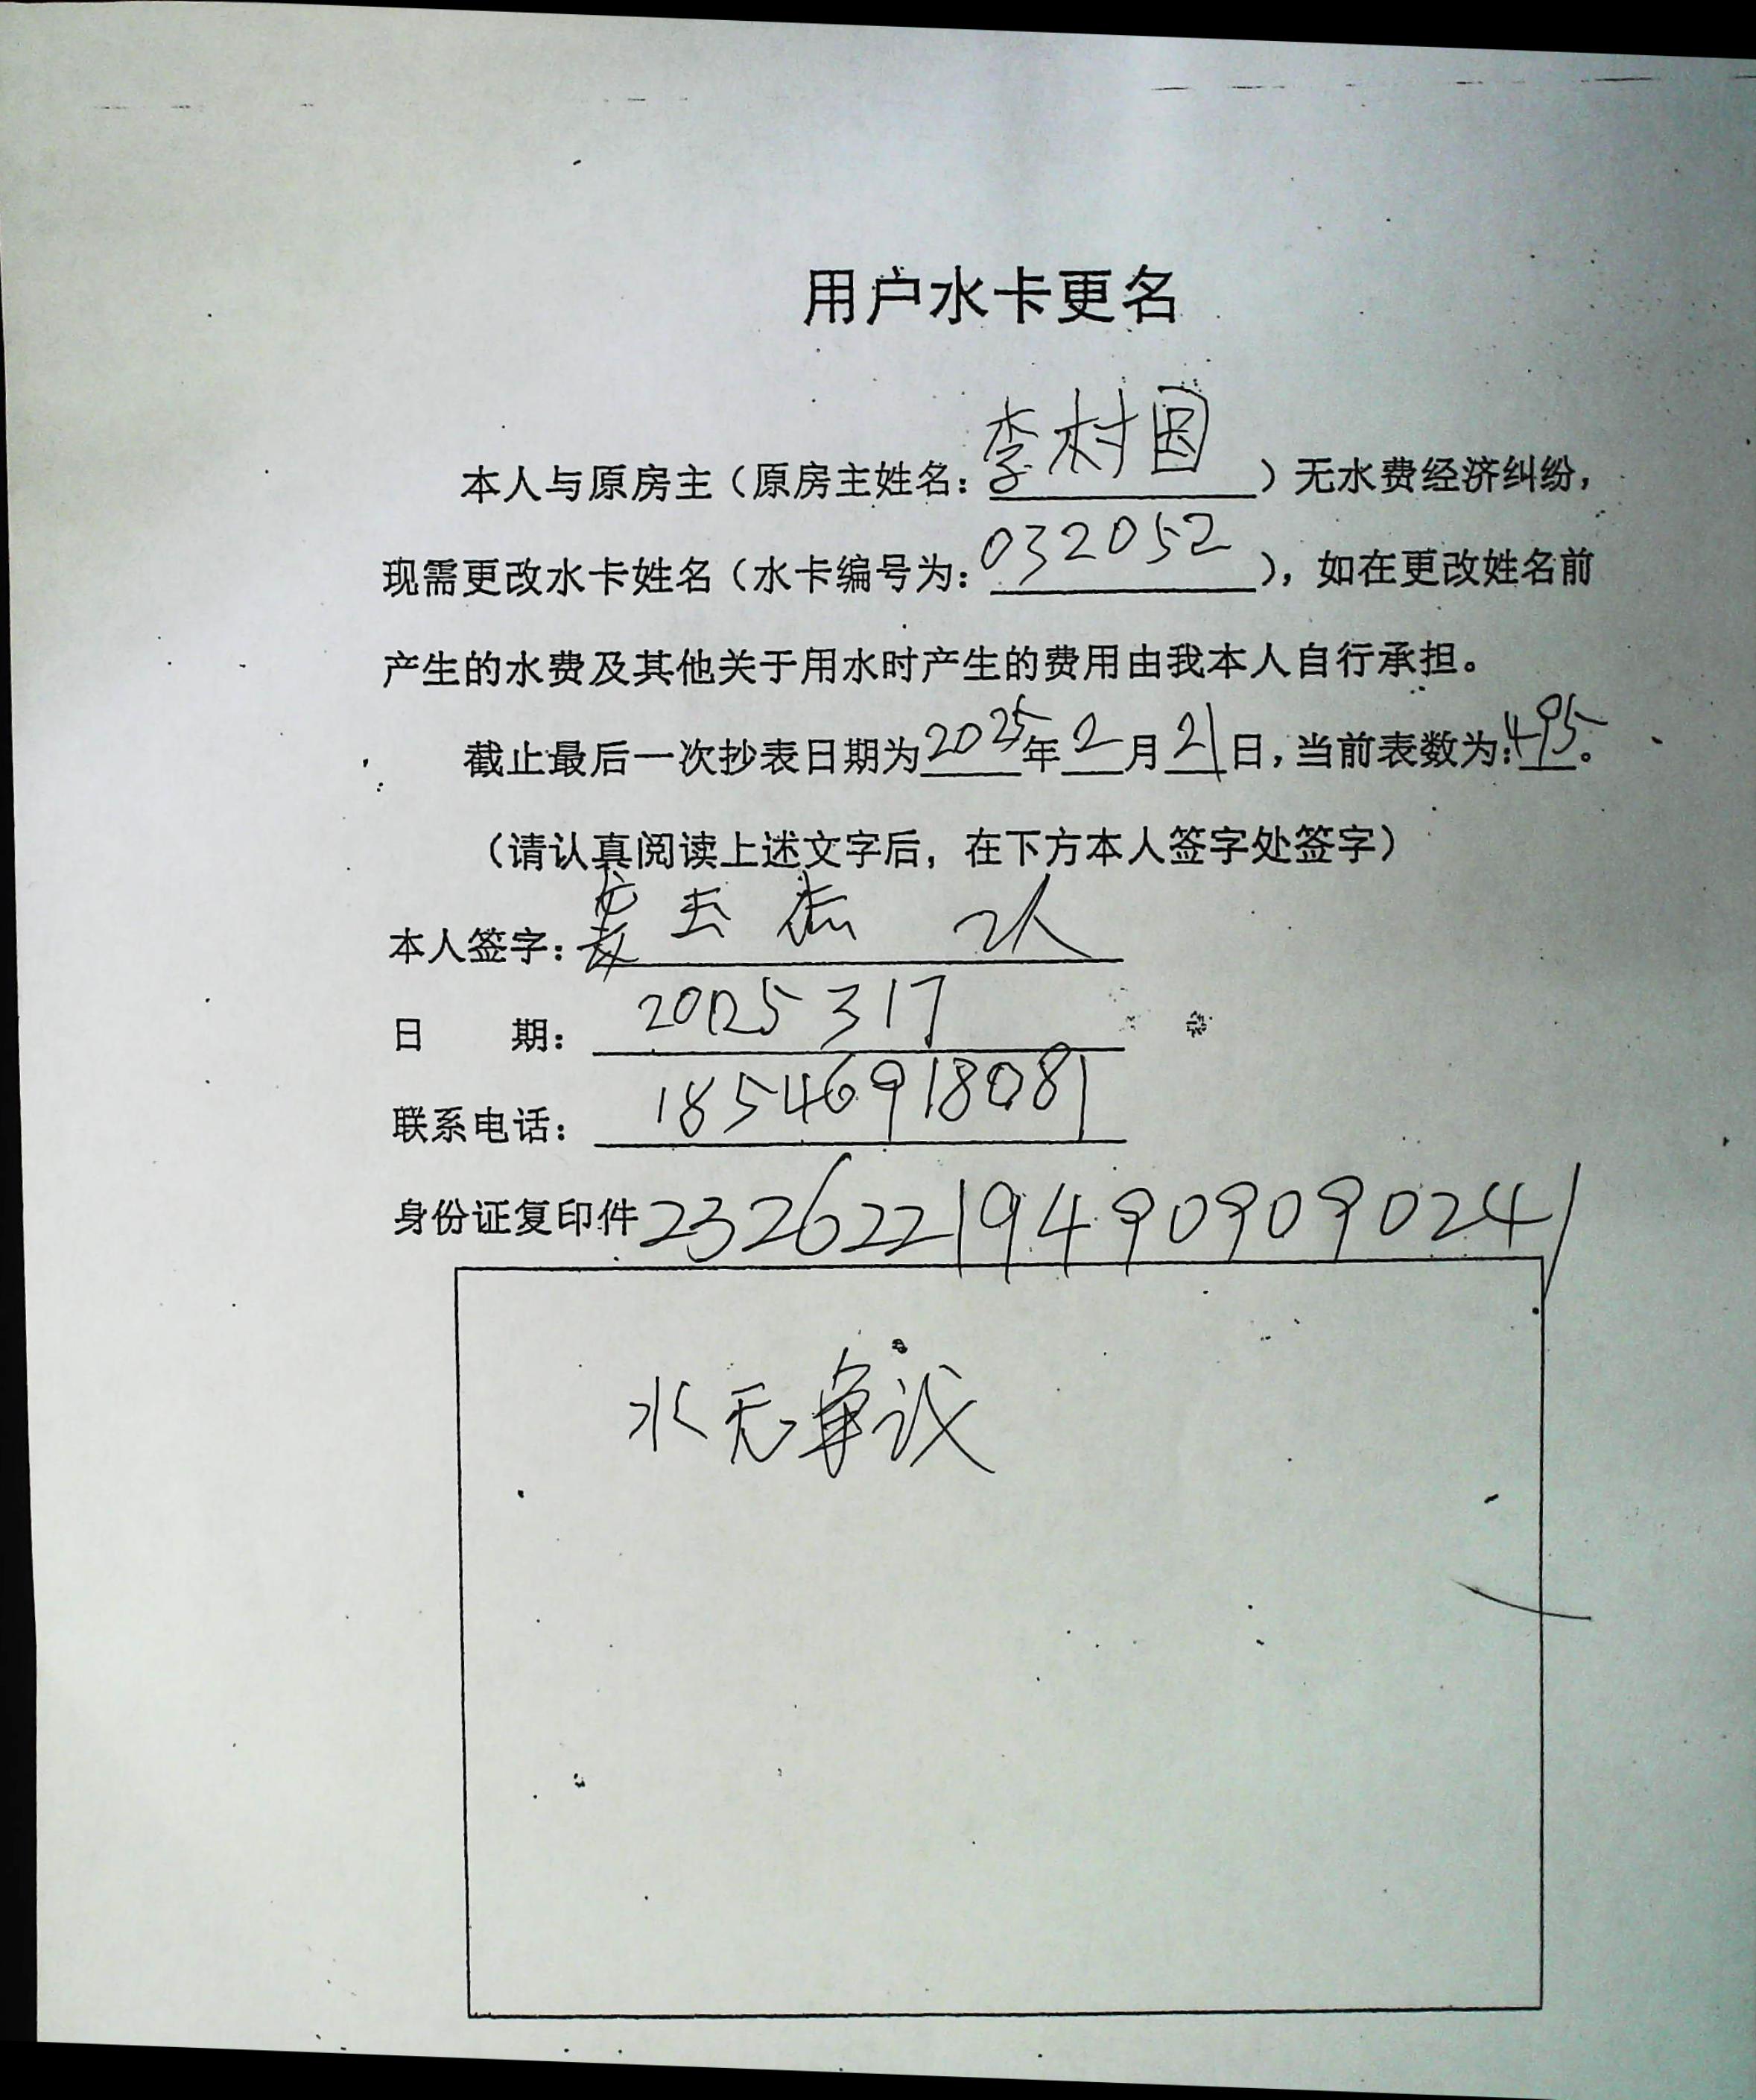 用户水卡更名
本人与原房主（原房主姓名：李树国）无水费经济纠纷，
现需更改水卡姓名（水卡编号为：032052），如在更改姓名前
产生的水费及其他关于用水时产生的费用由我本人自行承担。
截止最后一次抄表日期为2025年2月21日，当前表数为：495。
（请认真阅读上述文字后，在下方本人签字处签字）
本人签字：
日 期：2025 3 17
联系电话：18546918081
身份证复印件 232622194909090241
水无争议